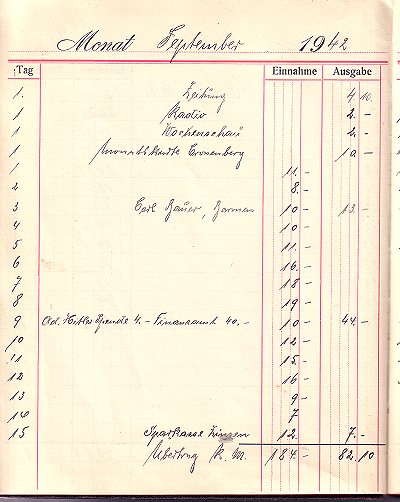 Monat September 1942
Tag Einnahme Ausgabe
1. Zeitung 4 10.
1 Radio 2.-
1 Wochenschau 2.-
1 Monatskarte Cronenberg 10.-
1 11.-
2 8.-
3 Carl Bauer, Barmen 10.- 13.-
4 10.-
5 11.-
6 16.-
7 18.-
8 19.-
9 Ad. Hitler Spende 4.- Finanzamt 40.- 10.- 44.-
10 12.-
11 15.-
12 16.-
13 9.-
14 7
15 Sparkasse Zinsen 12.- 7.-
Übertrag R.M. 184.- 82.10